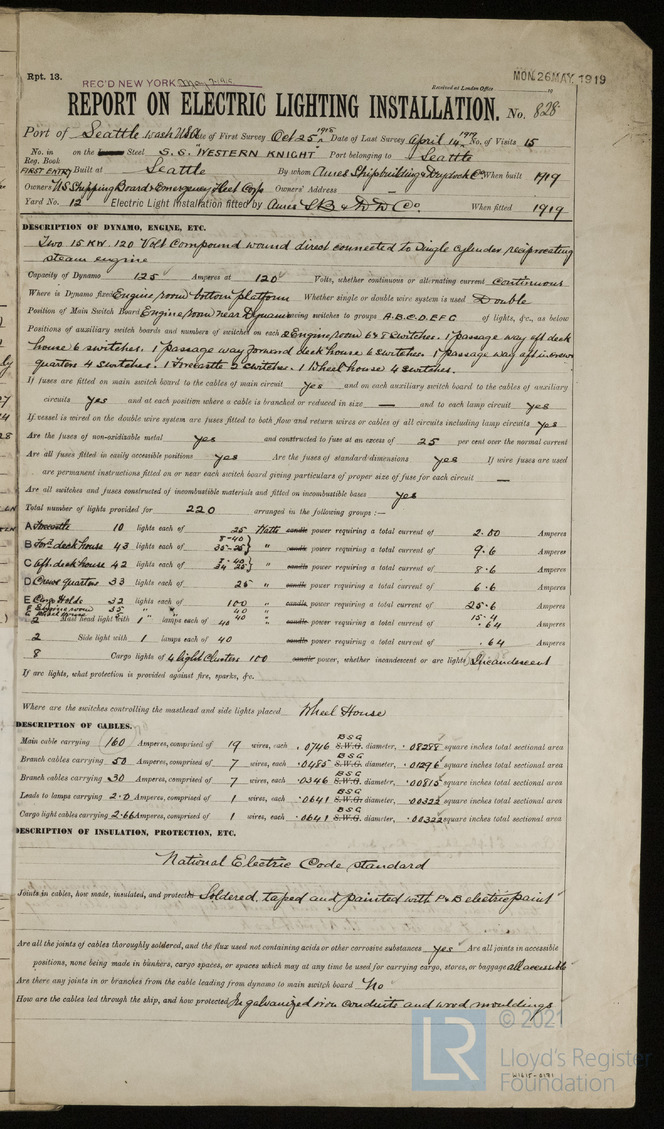 Rpt. 13.
REC'D NEW YORK May 7 1919
Received at London Office
MON. 26 MAY. 1919
REPORT ON ELECTRIC LIGHTING INSTALLATION. No. 828
Port of Seattle Wash USA Date of First Survey Oct 25 1918 Date of Last Survey April 14 1919 No. of Visits 15
No. in Reg. Book on the Steel S.S. "WESTERN KNIGHT" Port belonging to Seattle
FIRST ENTRY Built at Seattle By whom Ames Shipbuilding & Drydock Co When built 1919
Owners US Shipping Board & Emergency Fleet Corp Owners' Address —
Yard No. 12 Electric Light Installation fitted by Ames S.B. & D.D. Co. When fitted 1919
DESCRIPTION OF DYNAMO, ENGINE, ETC.
Two 15 KW. 120 Volt Compound wound direct connected to Single cylinder reciprocating
steam engine
Capacity of Dynamo 125 Amperes at 120 Volts, whether continuous or alternating current continuous
Where is Dynamo fixed Engine room bottom platform Whether single or double wire system is used Double
Position of Main Switch Board Engine room near Dynamo having switches to groups A.B.C.D.E.F.G of lights, &c., as below
Positions of auxiliary switch boards and numbers of switches on each 2 Engine room 6 & 8 switches. 1 passage way aft deck
house 6 switches. 1 passage way forward deck house 6 switches. 1 passage way aft in crews
quarters 4 switches. 1 Forecastle 2 switches. 1 Wheel house 4 switches.
If fuses are fitted on main switch board to the cables of main circuit yes and on each auxiliary switch board to the cables of auxiliary
circuits yes and at each position where a cable is branched or reduced in size — and to each lamp circuit yes
If vessel is wired on the double wire system are fuses fitted to both flow and return wires or cables of all circuits including lamp circuits yes
Are the fuses of non-oxidizable metal yes and constructed to fuse at an excess of 25 per cent over the normal current
Are all fuses fitted in easily accessible positions yes Are the fuses of standard dimensions yes If wire fuses are used
are permanent instructions fitted on or near each switch board giving particulars of proper size of fuse for each circuit —
Are all switches and fuses constructed of incombustible materials and fitted on incombustible bases yes
Total number of lights provided for 220 arranged in the following groups :—
A Forecastle 10 lights each of 25 Watts candle power requiring a total current of 2.00 Amperes
B Ford deck house 43 lights each of 8-40 35-25 } " candle power requiring a total current of 9.6 Amperes
C Aft. deck house 42 lights each of 8-40 34 25 } " candle power requiring a total current of 8.6 Amperes
D Crews quarters 33 lights each of 25 " candle power requiring a total current of 6.6 Amperes
E Cargo Holds 32 lights each of 100 " candle power requiring a total current of 25.6 Amperes
F Engine room 35 " " 40 " 15.4
2 Mast head light with 1 lamps each of 40 candle power requiring a total current of .64 Amperes
2 Side light with 1 lamps each of 40 candle power requiring a total current of .64 Amperes
8 Cargo lights of 4 light Clusters 100 candle power, whether incandescent or arc lights Incandescent
If arc lights, what protection is provided against fire, sparks, &c.
Where are the switches controlling the masthead and side lights placed Wheel House
DESCRIPTION OF CABLES.
Main cable carrying 160 Amperes, comprised of 19 wires, each .0746 B S G S.W.G. diameter, .08288 square inches total sectional area
Branch cables carrying 50 Amperes, comprised of 7 wires, each .0485 B S G S.W.G. diameter, .01296 square inches total sectional area
Branch cables carrying 30 Amperes, comprised of 7 wires, each .0346 B S G S.W.G. diameter, .00815 square inches total sectional area
Leads to lamps carrying 2.0 Amperes, comprised of 1 wires, each .0641 B S G S.W.G. diameter, .00322 square inches total sectional area
Cargo light cables carrying 2.66 Amperes, comprised of 1 wires, each .0641 B S G S.W.G. diameter, .00322 square inches total sectional area
DESCRIPTION OF INSULATION, PROTECTION, ETC.
National Electric Code standard
Joints in cables, how made, insulated, and protected Soldered, taped and painted with P & B electric paint
Are all the joints of cables thoroughly soldered, and the flux used not containing acids or other corrosive substances yes Are all joints in accessible
positions, none being made in bunkers, cargo spaces, or spaces which may at any time be used for carrying cargo, stores, or baggage all accessible
Are there any joints in or branches from the cable leading from dynamo to main switch board No
How are the cables led through the ship, and how protected In galvanized iron conduits and wood mouldings
LR
© 2021
Lloyd's Register
Foundation
W1615-0171